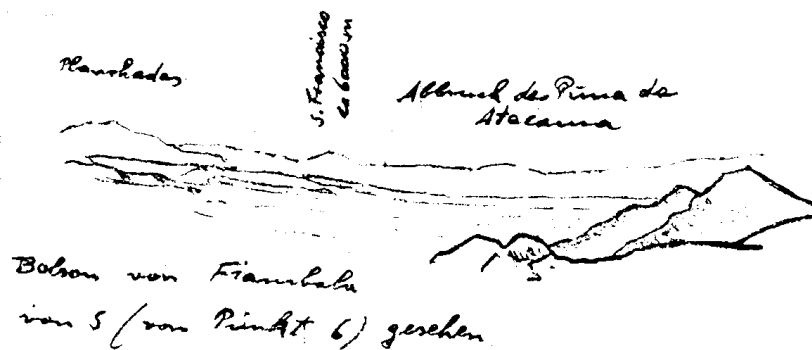 Planchadas
S. Francisco
ca 6000 m
Abbruch der Puna de
Atacama
Bolson von Fiambala
von S (von Punkt 6) gesehen